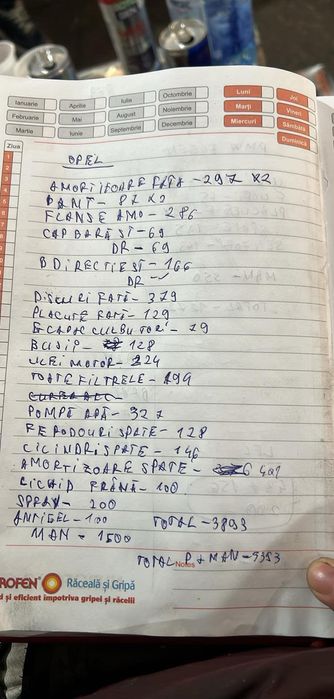 Ianuarie Aprilie Iulie Octombrie Luni Joi
Februarie Mai August Noiembrie Marți Vineri
Martie Iunie Septembrie Decembrie Miercuri Sâmbătă
Duminică
Ziua
OPEL
AMORTIZOARE FATA - 297 X2
BANT - 87 X2
FLANSE AMO - 286
CAP BARĂ ST - 69
DR - 69
B DIRECTIE ST - 166
DR -
DISCURI FATĂ - 379
PLACUTE FATĂ - 129
ECAPAC CULBUTORI - 79
BUJII - 128
ULEI MOTOR - 224
TOATE FILTRELE - 199
POMPĂ APĂ - 327
FERODOURI SPATE - 128
CILINDRI SPATE - 146
AMORTIZOARE SPATE - 401
LICHID FRÂNĂ - 100
SPRAY - 200
ANTIGEL - 100 TOTAL - 3893
MAN - 1500
TOTAL P + MAN - 5393
Notes
ROFEN Răceală și Gripă
d și eficient împotriva gripei și răcelii